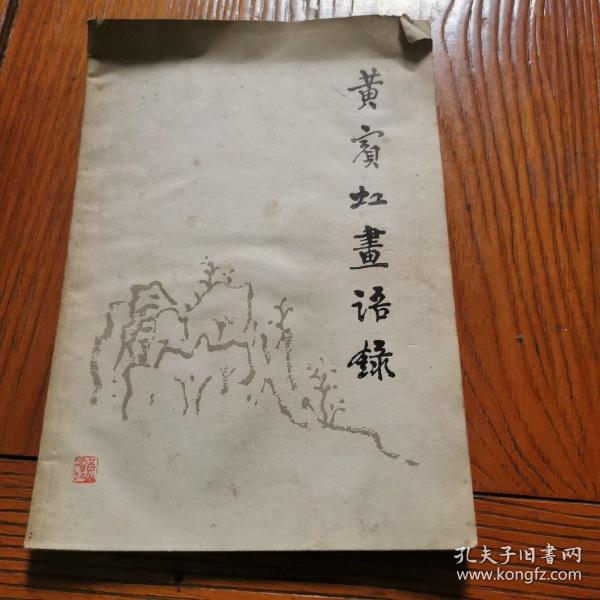 黄賓虹畫语録
孔夫子旧書网
www.kongfz.com